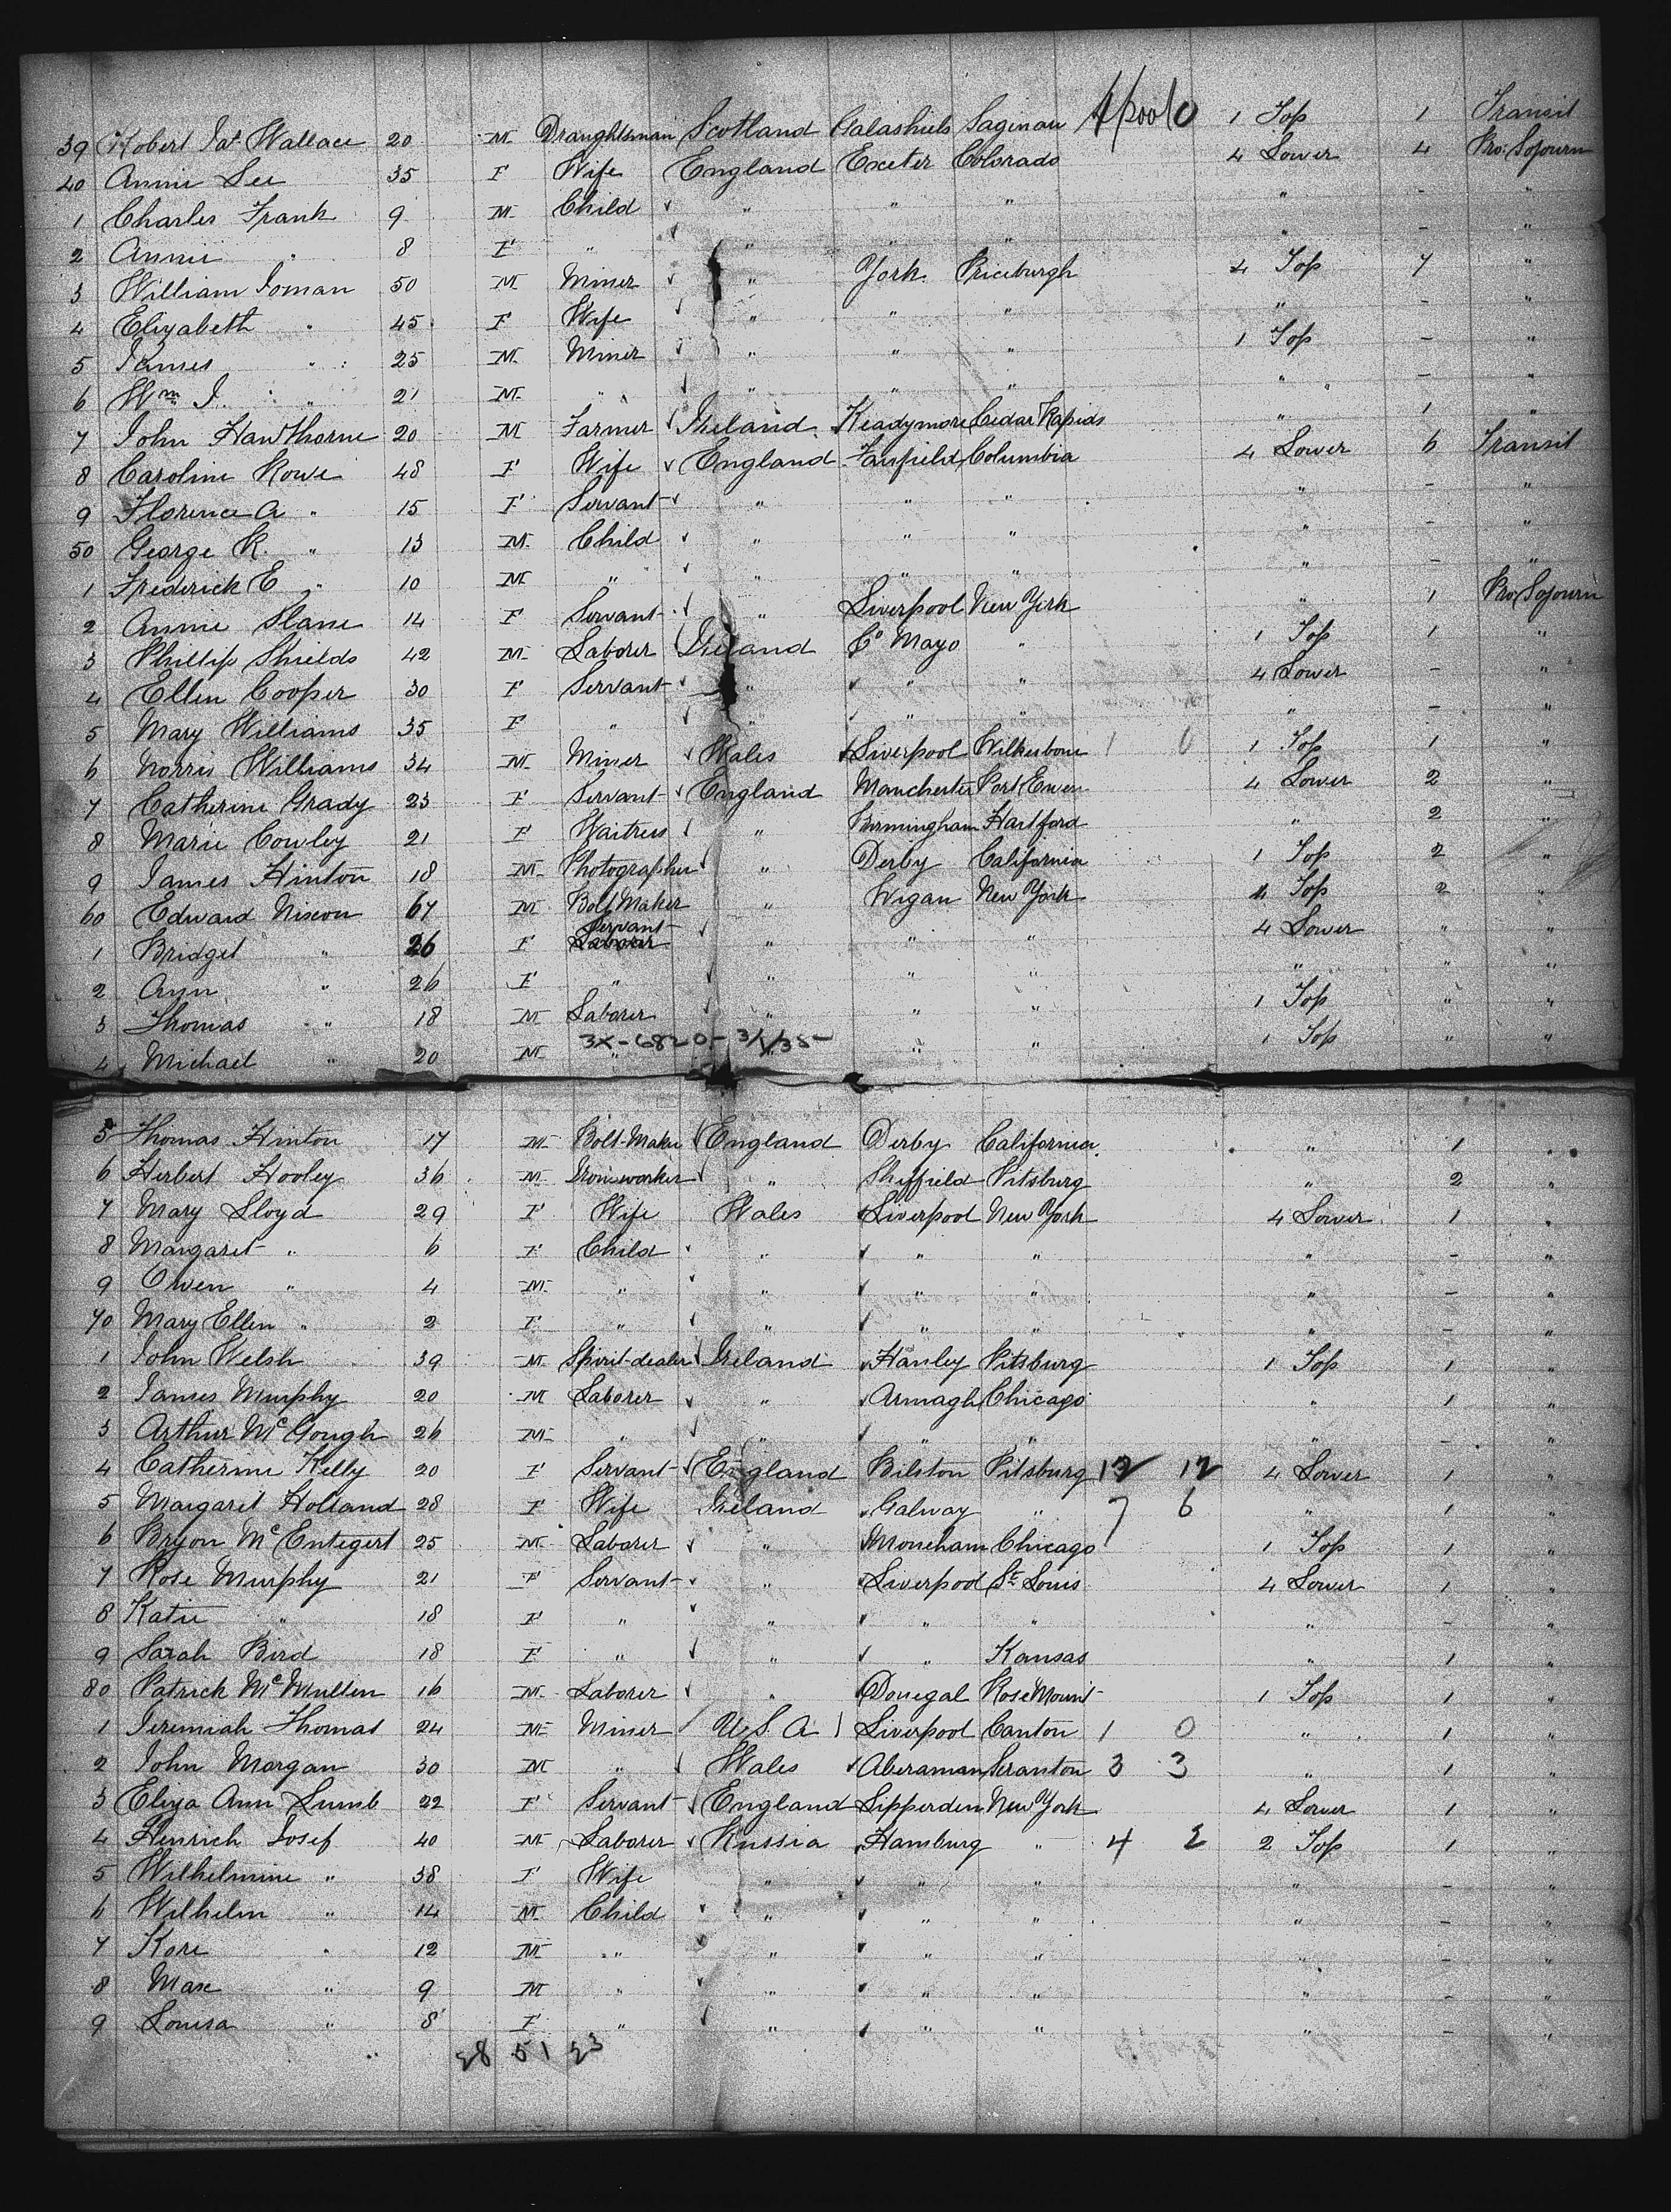 39 Robert Jas Wallace 20 M Draughtsman Scotland Galashiels Saginaw L'pool 0 1 Top 1 Transit
40 Annie Lee 35 F Wife England Exeter Colorado 4 Lower 4 Pro: Sojourn
1 Charles Frank 9 M Child " " " " - "
2 Annie " 8 F " " " " " - "
3 William Toman 50 M Miner " York Priceburgh 4 Top 7 "
4 Elizabeth " 45 F Wife " " " " - "
5 James " 25 M Miner " " " 1 Top - "
6 Wm J. " 21 M " " " " " - "
7 John Hawthorne 20 M Farmer Ireland Keadymore Cedar Rapids " 1 "
8 Caroline Rowe 48 F Wife England Fairfield Columbia 4 Lower 6 Transit
9 Florence A " 15 F Servant " " " " - "
50 George R. " 13 M Child " " " " - "
1 Frederick E " 10 M " " " " " - "
2 Annie Slane 14 F Servant " Liverpool New York " 1 Pro: Sojourn
3 Phillip Shields 42 M Laborer Ireland Co Mayo " 1 Top 1 "
4 Ellen Cooper 30 F Servant " " " 4 Lower - "
5 Mary Williams 35 F " " " " " - "
6 Norris Williams 34 M Miner Wales Liverpool Wilkesbone 1 0 1 Top 1 "
7 Catherine Grady 23 F Servant England Manchester Port Ewen 4 Lower 2 "
8 Marie Cowley 21 F Waitress " Birmingham Hartford " 2 "
9 James Hinton 18 M Photographer " Derby California 1 Top 2 "
60 Edward Nixon 67 M Bolt Maker " Wigan New York 4 Top 2 "
1 Bridget " 26 F Servant Laborer " " " 4 Lower " "
2 Ann " 26 F " " " " " " "
3 Thomas " 18 M Laborer " " " 1 Top " "
4 Michael " 20 M " " " 1 Top " "
3X-6820-3/1/35-
5 Thomas Hinton 17 M Bolt-Maker England Derby California " 1 "
6 Herbert Hooley 36 M Ironworker " Sheffield Pitsburg " 2 "
7 Mary Lloyd 29 F Wife Wales Liverpool New York 4 Lower 1 "
8 Margaret " 6 F Child " " " " - "
9 Owen " 4 M " " " " " - "
70 Mary Ellen " 2 F " " " " " - "
1 John Welsh 39 M Spirit-dealer Ireland Hanley Pitsburg 1 Top 1 "
2 James Murphy 20 M Laborer " Armagh Chicago " 1 "
3 Arthur McGough 26 M " " " " " - "
4 Catherine Kelly 20 F Servant England Bilston Pitsburg 12 12 4 Lower 1 "
5 Margaret Holland 28 F Wife Ireland Galway " 7 6 " 1 "
6 Bryon McEntegert 25 M Laborer " Moneham Chicago 1 Top 1 "
7 Rose Murphy 21 F Servant " Liverpool St Louis 4 Lower 1 "
8 Katie " 18 F " " " " " - "
9 Sarah Bird 18 F " " " Kansas " 1 "
80 Patrick McMullen 16 M Laborer " Donegal Rose Mount 1 Top 1 "
1 Jeremiah Thomas 24 M Miner U.S.A Liverpool Canton 1 0 " 1 "
2 John Morgan 30 M " Wales Aberaman Scranton 3 3 " 1 "
3 Eliza Ann Lumb 22 F Servant England Lipperden New York 4 Lower 1 "
4 Heinrich Josef 40 M Laborer Russia Hamburg " 4 2 2 Top 1 "
5 Wilhelmine " 38 F Wife " " " " - "
6 Wilhelm " 14 M Child " " " " - "
7 Kore " 12 M " " " " " - "
8 Max " 9 M " " " " " - "
9 Louisa " 8 F " " " " " - "
38 51 23